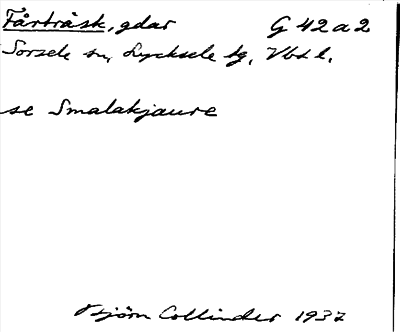 Fårträsk, gdar G 42 a 2
Sorsele sn, Lycksele tg, Vbd l.
se Smalakjaure
Björn Collinder 1937